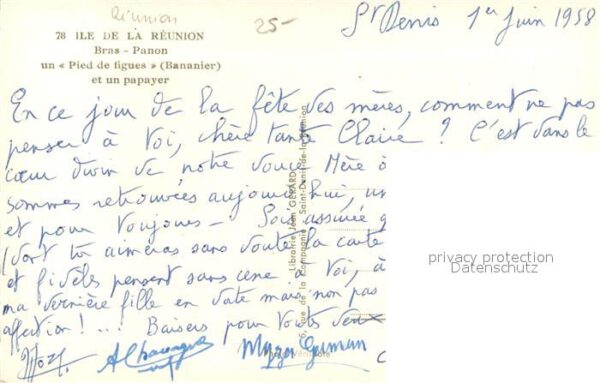 Réunion
25-
St Denis 1er Juin 1958
78 ILE DE LA RÉUNION
Bras - Panon
un « Pied de figues » (Bananier)
et un papayer
En ce jour de la fête des mères, comment ne pas
penser à toi, chère tante Claire ? C'est dans le
cœur divin de notre douce Mère
sommes retrouvées aujourd'hui, un
et pour toujours - Sois assurée q
(dont tu aimeras sans doute la carte
et fidèles pensent sans cesse à toi, à
ma dernière fille en date mais non pas
affection ! ... Baisers pour toutes deux
Librairie Jean GÉRARD
rue de la Compagnie Saint-Denis-de-la-Réunion
privacy protection
Datenschutz